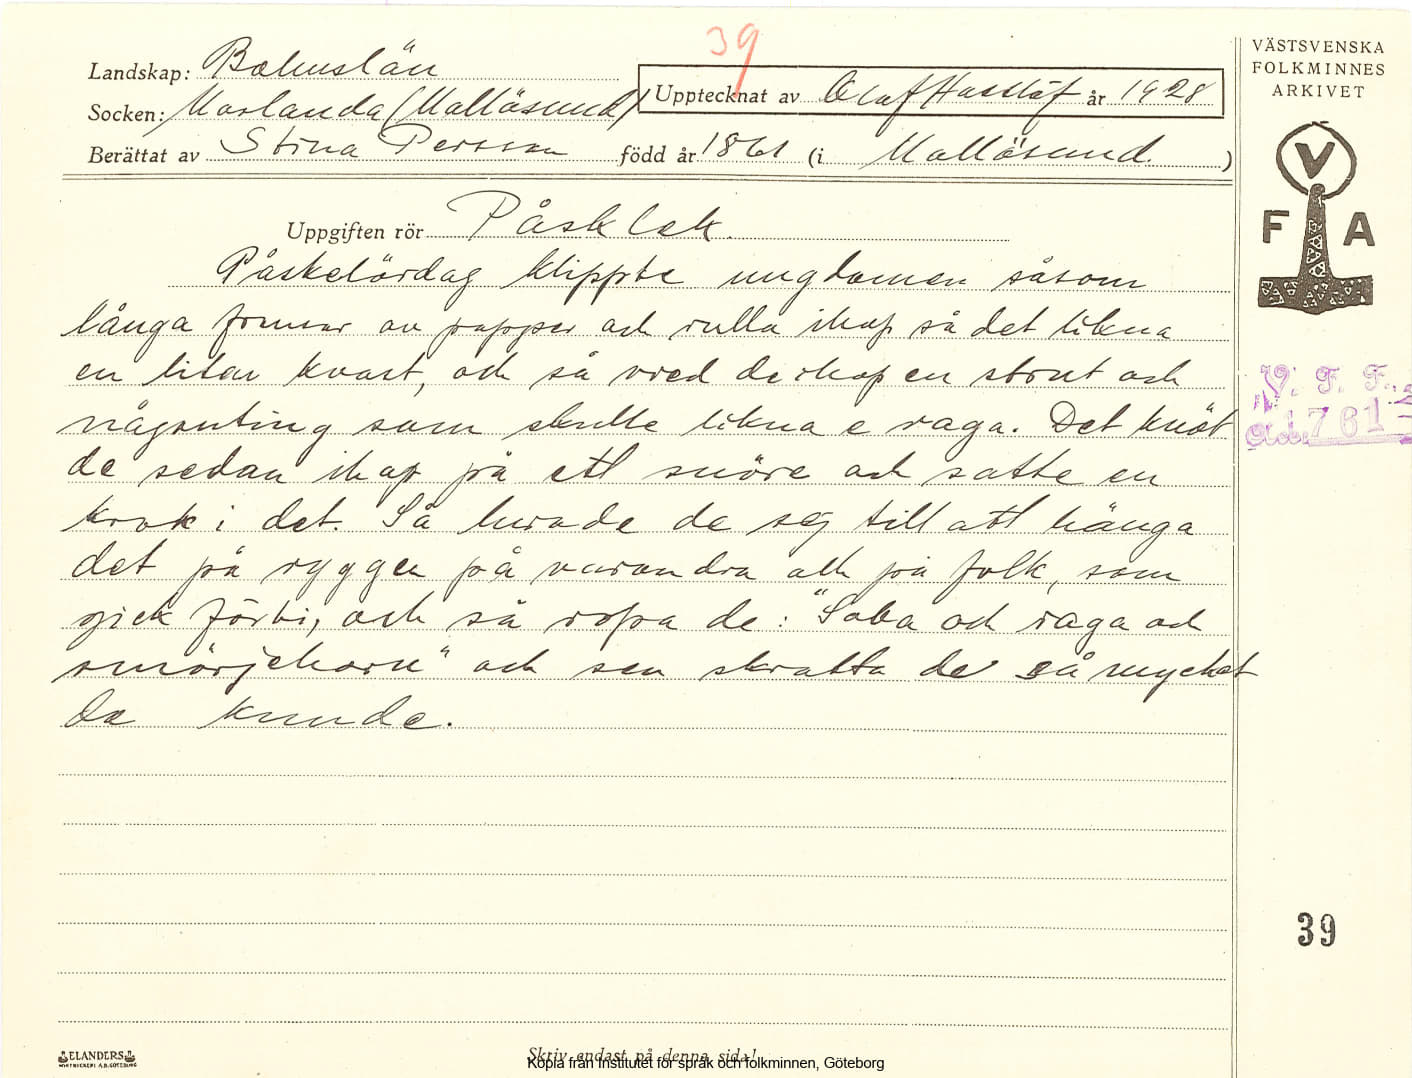 39
Landskap: Bohuslän
Socken: Morlanda (Mollösund)
Upptecknat av Olof Hasslöf år 1928
Berättat av Stina Persson född år 1861 (i Mollösund.)
Uppgiften rör Påsklek.
Påskelördag klippte ungdomen såsom
långa fransar av papper och rulla ihop så det likna
en liten kvast, och så vred de ihop en strut och
någonting som skulle likna e raga. Det knöt
de sedan ihop på ett snöre och satte en
krok i det. Så lurade de sej till att hänga
det på ryggen på varandra och på folk, som
gick förbi, och så ropa de: "Soba och raga och
smörjehorn" och sen skratta de så mycket
de kunde.
VÄSTSVENSKA
FOLKMINNES
ARKIVET
V
F A
V. F. F.
1761
39
ELANDERS
Skriv endast på denna sida!
Kopia från Institutet för språk och folkminnen, Göteborg